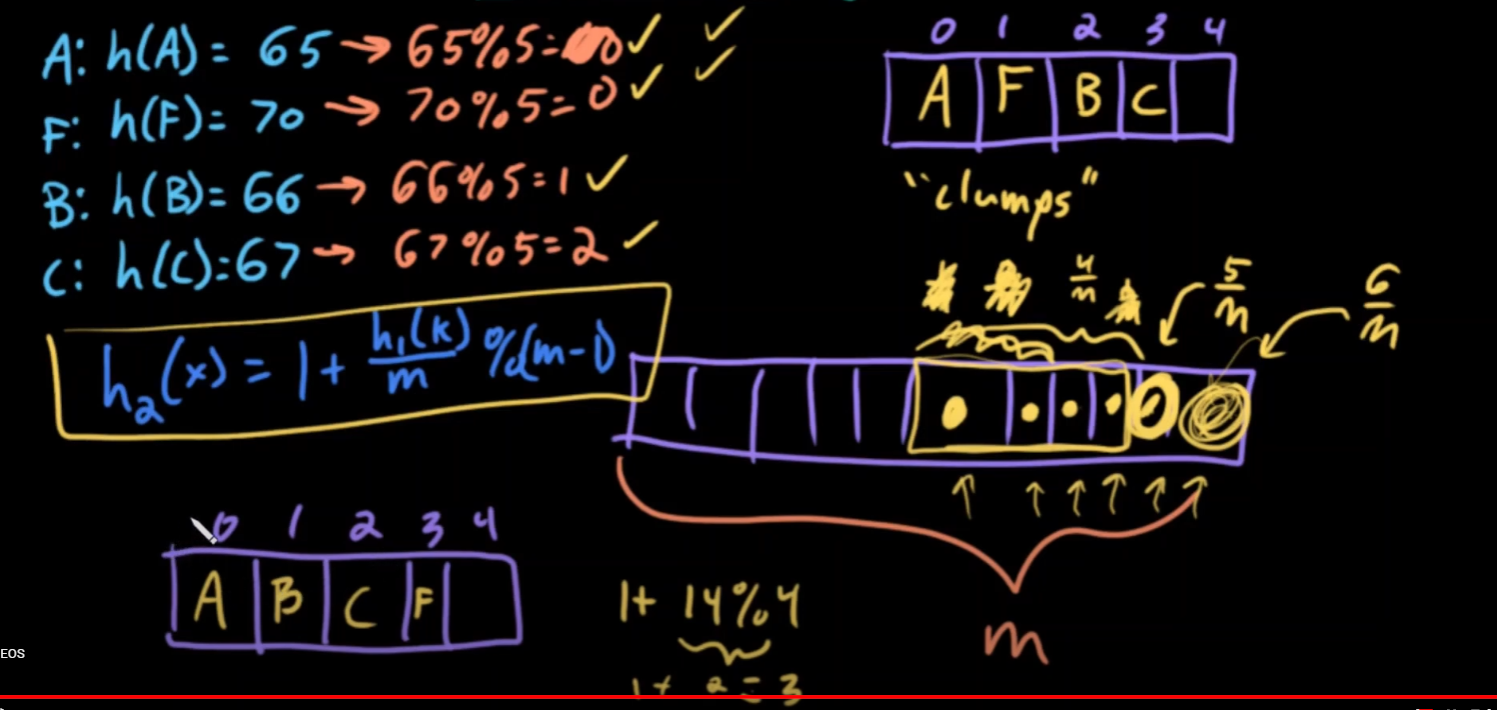 A: h(A) = 65 → 65%5=0 ✓ ✓
F: h(F) = 70 → 70%5=0 ✓ ✓
B: h(B)= 66 → 66%5=1 ✓
C: h(C)=67 → 67%5=2 ✓
h₂(x) = 1+ h₁(k)/m %(m-1)
0 1 2 3 4
A F B C
"clumps"
4/m 5/m 6/m
m
0 1 2 3 4
A B C F
1+ 14%4
1+ 2 = 3
EOS